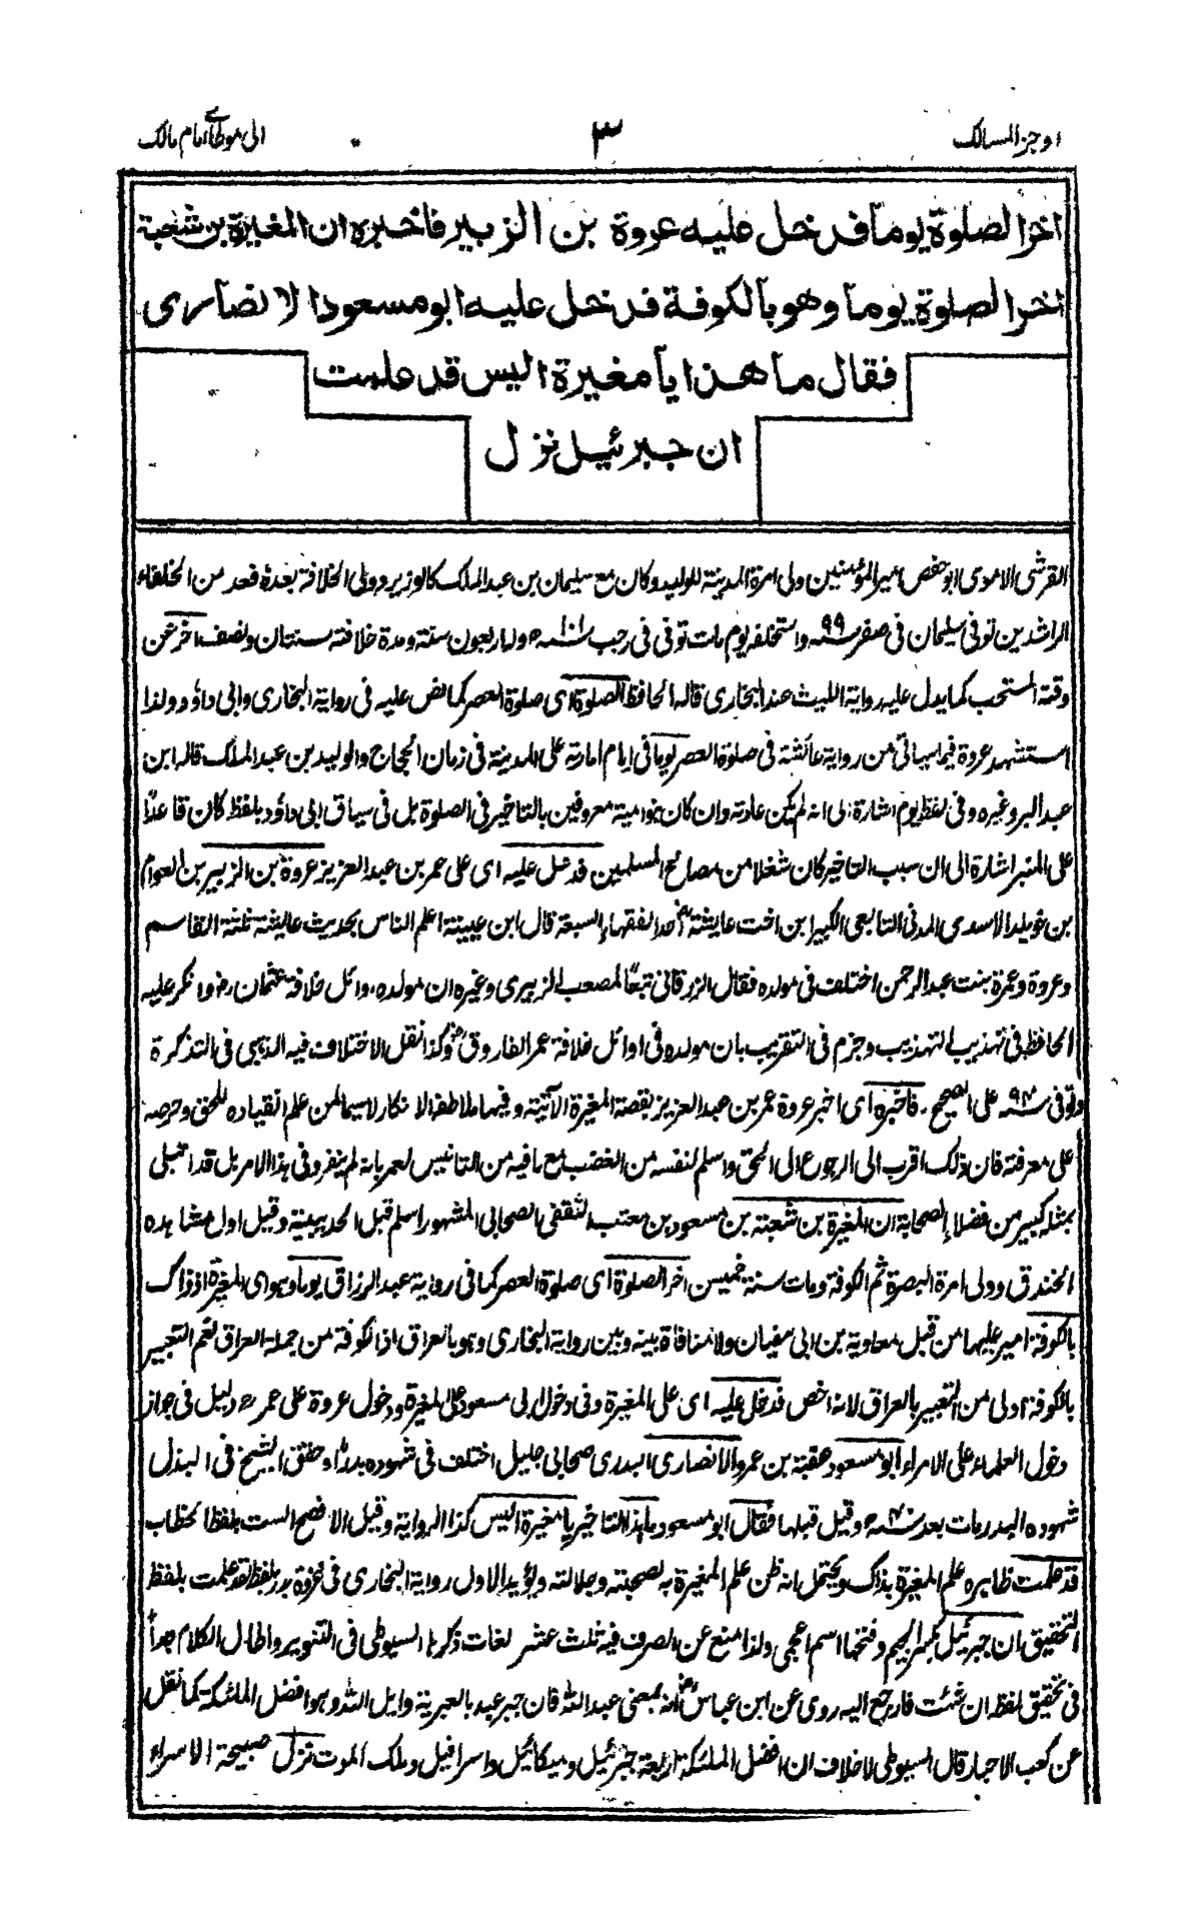 اوجز المسالك
٣
الى موطأ امام مالك
اخر الصلوة يوما فدخل عليه عروة بن الزبير فاخبره ان المغيرة بن شعبة
اخر الصلوة يوما وهو بالكوفة فدخل عليه ابو مسعود الانصارى
فقال ما هذا يا مغيرة اليس قد علمت
ان جبرئيل نزل
القرشى الاموى ابو حفص امير المؤمنين ولى امرة المدينة للوليد وكان مع سليمان بن عبد الملك كالوزير وولى الخلافة بعده فعد من الخلفاء
الراشدين توفى سليمان فى صفر سنة ٩٩ واستخلفه يوم مات توفى فى رجب سنة ١٠١ وله اربعون سنة ومدة خلافته سنتان ونصف اخر عن
وقته المستحب كما يدل عليه رواية الليث عند البخارى قاله الحافظ الصلوة اى صلوة العصر كما نص عليه فى رواية البخارى وابى داؤد ولذا
استشهد عروة فيما سياتى من رواية عائشة فى صلوة العصر يوما فى ايام امارته على المدينة فى زمان الحجاج والوليد بن عبد الملك قاله ابن
عبد البر وغيره وفى لفظ يوم اشارة الى انه لم يكن عادته وان كان بنو امية معروفين بالتاخير فى الصلوة بل فى سياق ابى داؤد بلفظ كان قاعدًا
على المنبر اشارة الى ان سبب التاخير كان شغلا من مصالح المسلمين فدخل عليه اى على عمر بن عبد العزيز عروة بن الزبير بن العوام
بن خويلد الاسدى المدنى التابعى الكبير ابن اخت عايشة احد الفقهاء السبعة قال ابن عيينة اعلم الناس بحديث عايشة ثلثة القاسم
وعروة وعمرة بنت عبد الرحمن اختلف فى مولده فقال الزرقانى تبعًا لمصعب الزبيرى وغيره ان مولده اوائل خلافة عثمان وانكر عليه
الحافظ فى تهذيب التهذيب وجزم فى التقريب بان مولده فى اوائل خلافة عمر الفاروق وكذا نقل الاختلاف فيه الذهبى فى التذكرة
وتوفى سنة ٩٤ على الصحيح، فاخبره اى اخبر عروة عمر بن عبد العزيز بقصة المغيرة الآتية وفيها ملاطفة الانكار لا سيما لمن علم انقياده للحق وحرصه
على معرفته فان ذلك اقرب الى الرجوع الى الحق واسلم لنفسه من الغضب مع ما فيه من التانيس لعمر بانه لم ينفرد فى هذا الامر بل قد ابتلى
بمثله كبير من فضلاء الصحابة ان المغيرة بن شعبة بن مسعود بن معتب الثقفى الصحابى المشهور اسلم قبل الحديبية وقيل اول مشاهده
الخندق وولى امرة البصرة ثم الكوفة ومات سنة خمسين اخر الصلوة اى صلوة العصر كما فى رواية عبد الرزاق يوما وهو اى المغيرة اذ ذاك
بالكوفة امير عليها من قبل معاوية بن ابى سفيان ولا منافاة بينه وبين رواية البخارى وهو بالعراق اذ الكوفة من جملة العراق نعم التعبير
بالكوفة اولى من التعبير بالعراق لانه اخص فدخل عليه اى على المغيرة وفى دخول ابى مسعود على المغيرة ودخول عروة على عمر دليل فى جواز
دخول العلماء على الامراء ابو مسعود عقبة بن عمرو الانصارى البدرى صحابى جليل اختلف فى شهوده بدرًا وحقق الشيخ فى البذل
شهوده البدر مات بعد سنة ٤٠ وقيل قبلها فقال ابو مسعود ما هذا التاخير يا مغيرة اليس كذا الرواية وقيل الافصح الست بلفظ الخطاب
قد علمت ظاهره علم المغيرة بذلك ويحتمل انه ظن علم المغيرة به لصحبته وجلالته ويؤيد الاول رواية البخارى فى غزوة بدر بلفظ لقد علمت بلفظ
التحقيق ان جبرئيل بكسر الجيم وفتحها اسم اعجمى ولذا منع عن الصرف فيه ثلث عشر لغات ذكرها السيوطى فى التنوير واطال الكلام جدا
فى تحقيق لفظه ان شئت فارجع اليه روى عن ابن عباس انه بمعنى عبد الله فان جبر عبد بالعبرية وايل الله وهو افضل الملئكة كما نقل
عن كعب الاحبار قال السيوطى لا خلاف ان افضل الملئكة اربعة جبرئيل وميكائيل واسرافيل وملك الموت نزل صبيحة الاسراء